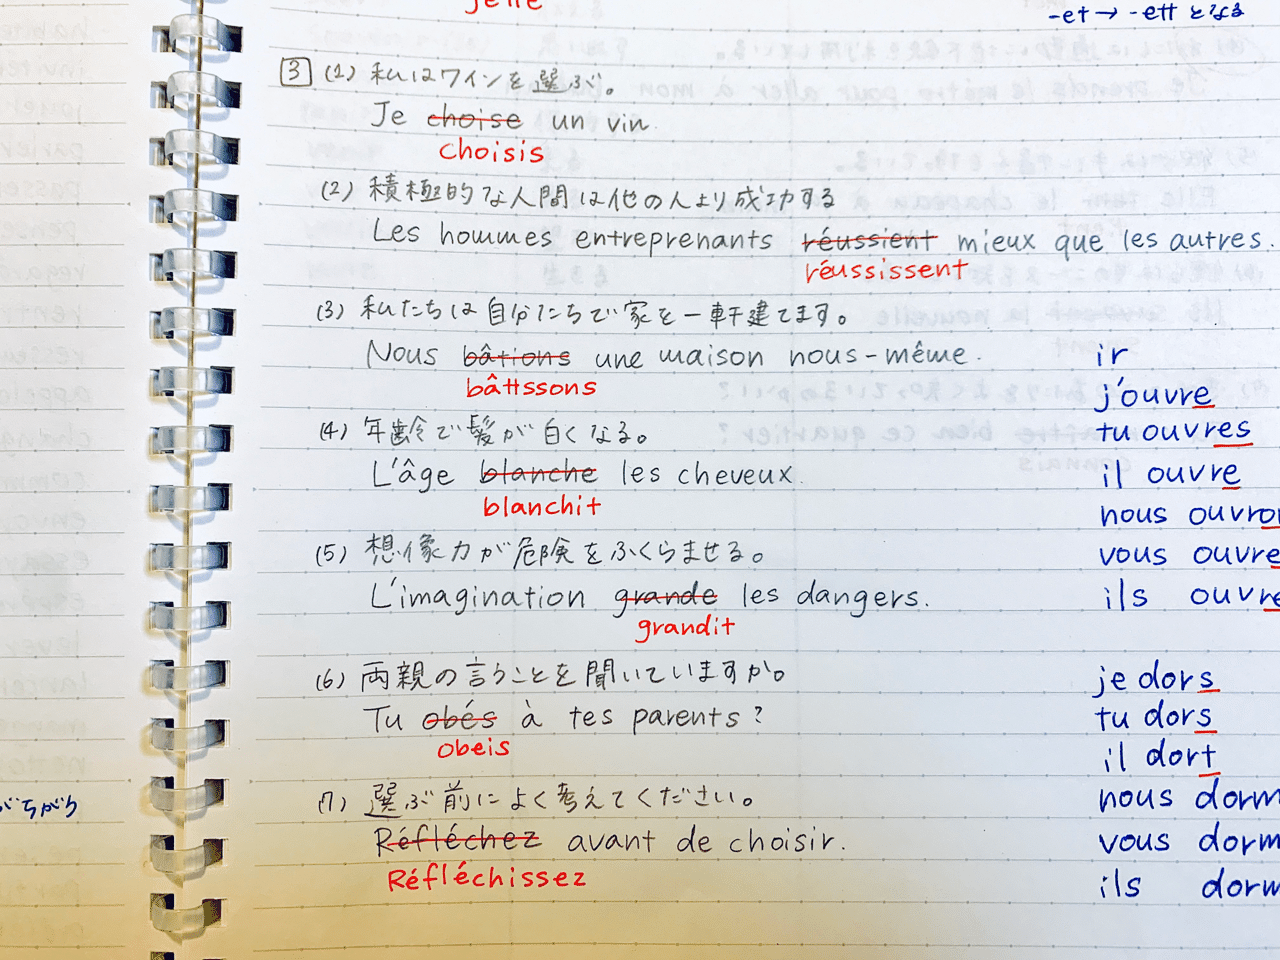 -et → -ett となる
3 (1) 私はワインを選ぶ。
Je choise un vin.
choisis
(2) 積極的な人間は他の人より成功する
Les hommes entreprenants réussient mieux que les autres.
réussissent
(3) 私たちは自分たちで家を一軒建てます。
Nous bâtions une maison nous-même.
bâttssons
(4) 年齢で髪が白くなる。
L'âge blanche les cheveux.
blanchit
(5) 想像力が危険をふくらませる。
L'imagination grande les dangers.
grandit
(6) 両親の言うことを聞いていますか。
Tu obés à tes parents?
obeis
(7) 選ぶ前によく考えてください。
Réfléchez avant de choisir.
Réfléchissez
ir
j'ouvre
tu ouvres
il ouvre
nous ouvro
vous ouvre
ils ouvre
je dors
tu dors
il dort
nous dorm
vous dorm
ils dorm